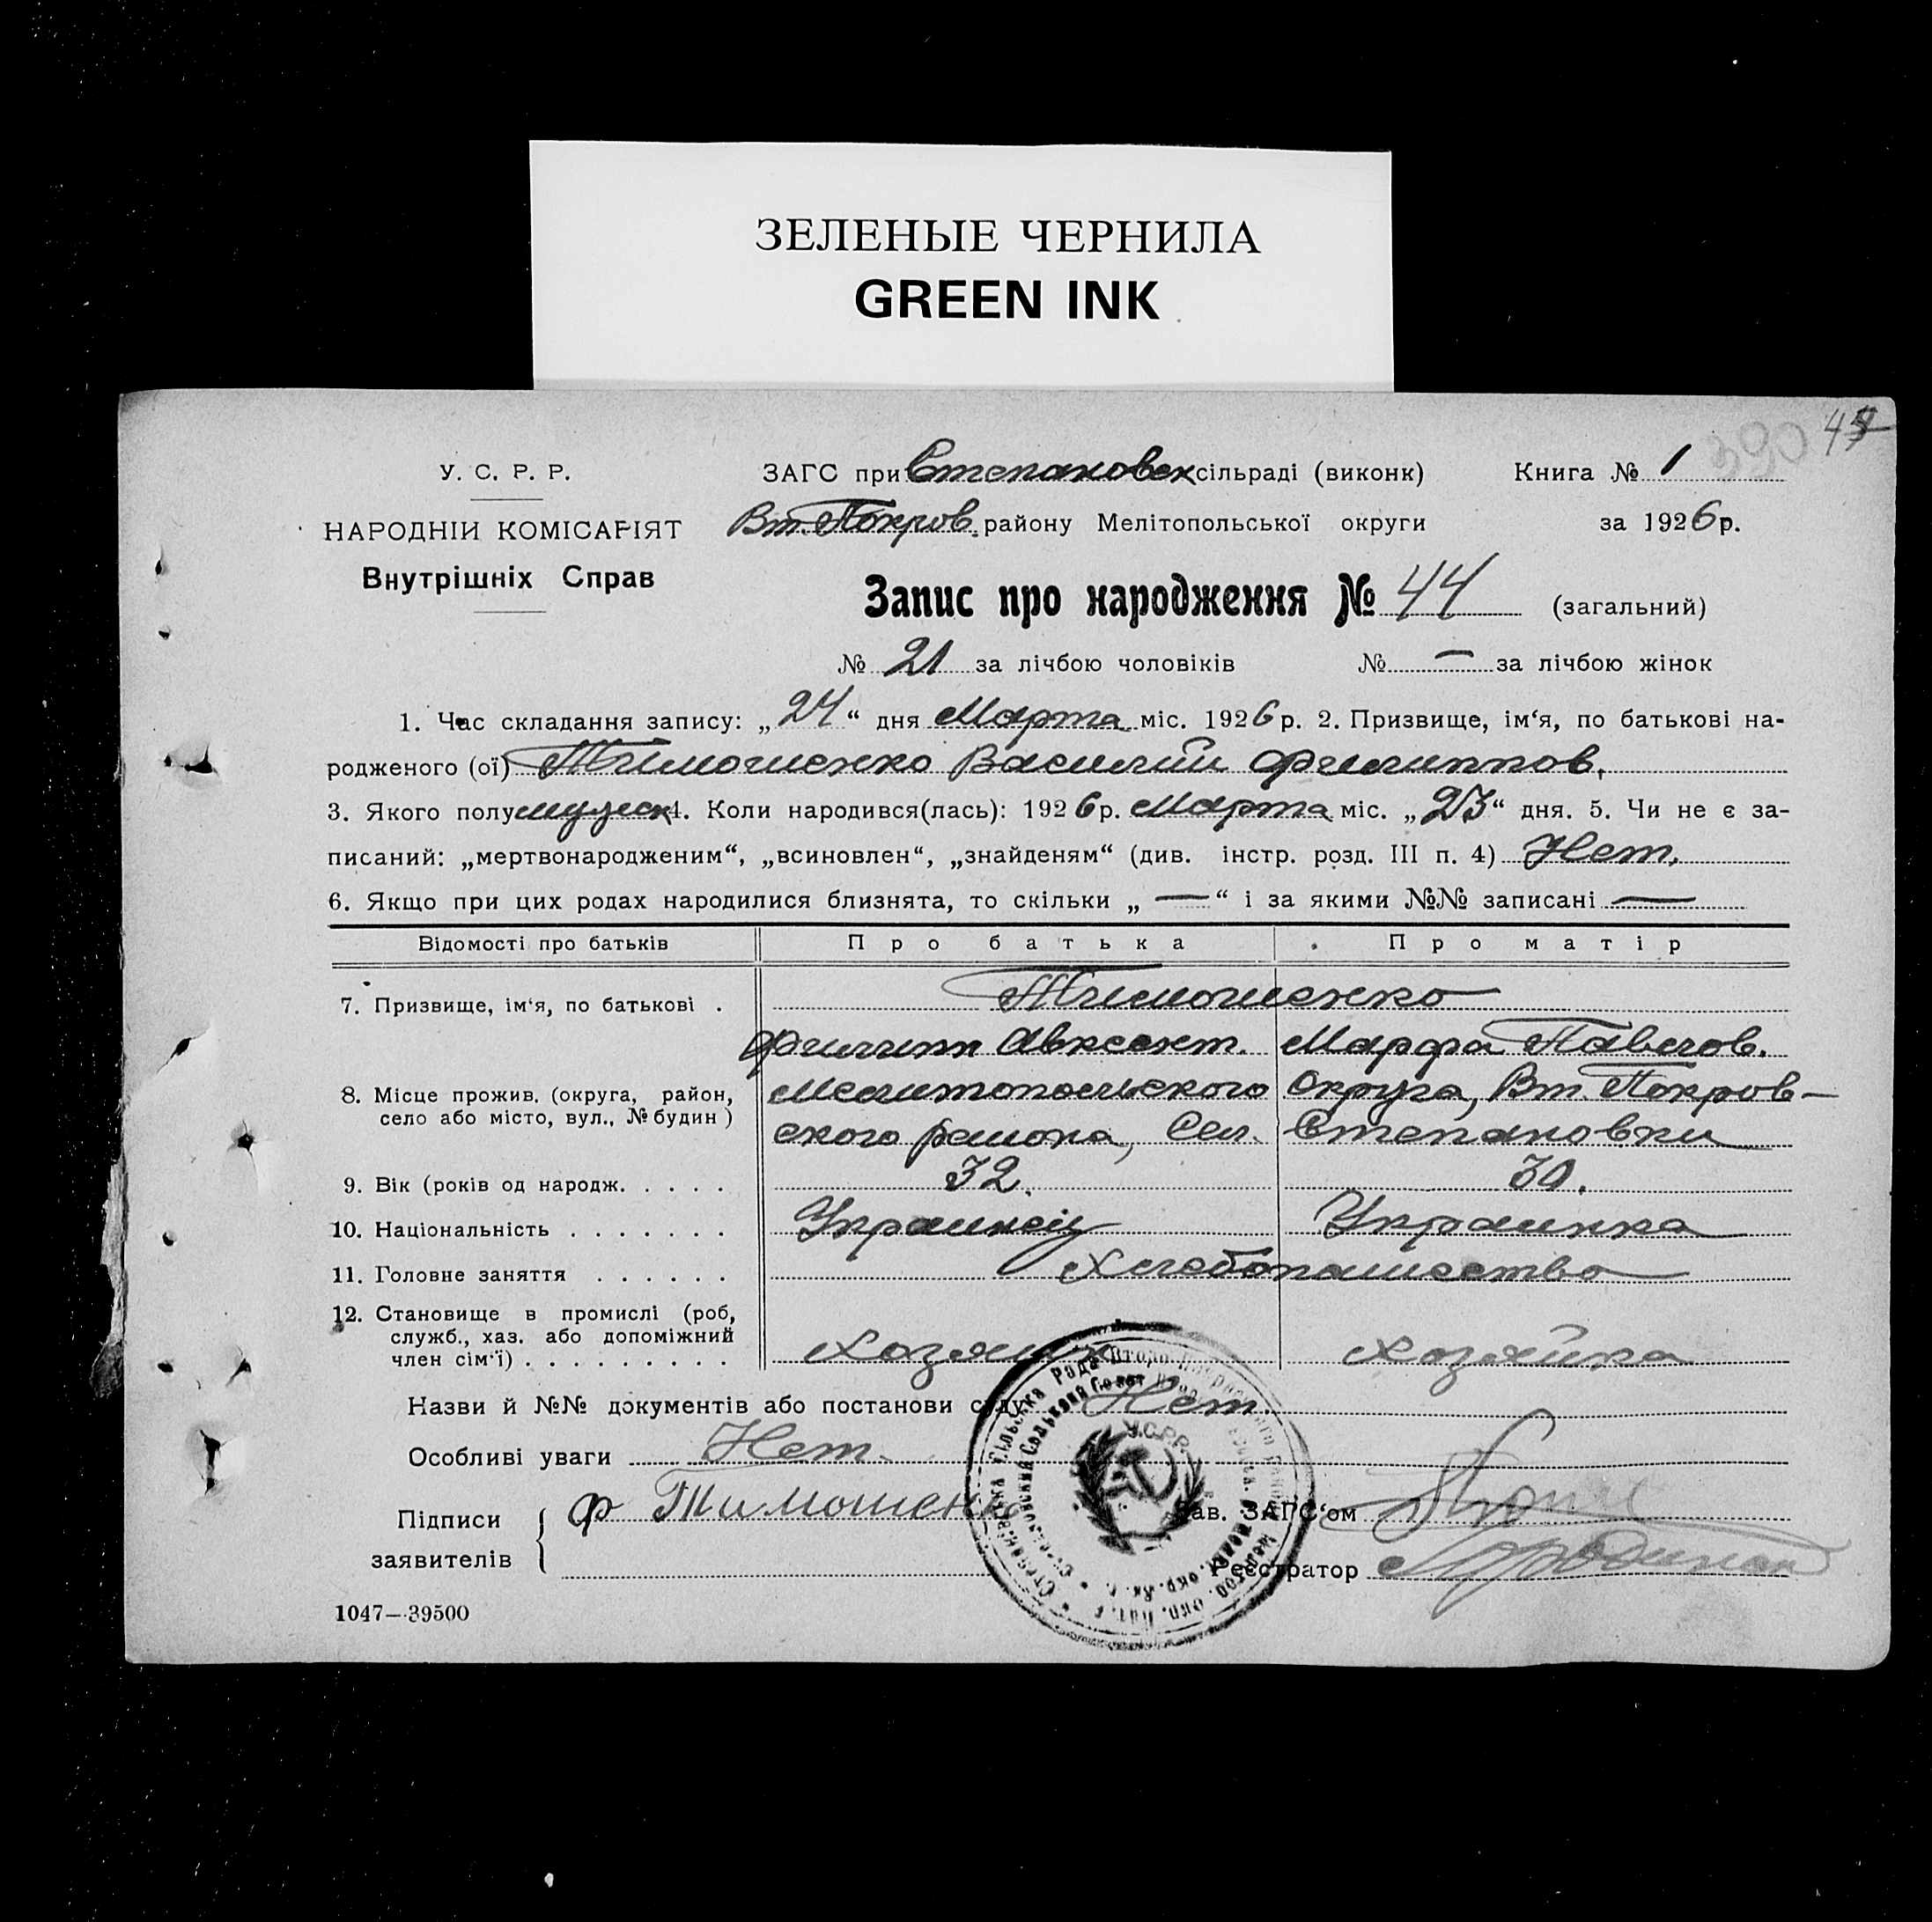 ЗЕЛЕНЫЕ ЧЕРНИЛА
GREEN INK
390 45
У. С. Р. Р. ЗАГС при Степановск сільраді (виконк) Книга № 1
НАРОДНІЙ КОМІСАРІЯТ Вт. Покров. району Мелітопольської округи за 1926 р.
Внутрішніх Справ Запис про народження № 44 (загальний)
№ 21 за лічбою чоловіків № — за лічбою жінок
1. Час складання запису: „24“ дня Марта міс. 1926 р. 2. Призвище, ім‘я, по батькові на-
родженого (ої) Тимошенко Василий Филиппов.
3. Якого полу мужск 4. Коли народився(лась): 1926 р. Марта міс. „23“ дня. 5. Чи не є за-
писаний: „мертвонародженим“, „всиновлен“, „знайденям“ (див. інстр. розд. III п. 4) Нет.
6. Якщо при цих родах народилися близнята, то скільки „ — “ і за якими №№ записані —
Відомості про батьків Про батька Про матір
7. Призвище, ім‘я, по батькові . Тимошенко
Филипп Авксент. Марфа Павлов.
8. Місце прожив. (округа, район, село або місто, вул., № будин) Мелитопольского Округа, Вт. Покров-
ского района, Сел. Степановки
9. Вік (років од народж. . . . . 32. 30.
10. Національність . . . . . . . Украинец Украинка
11. Головне заняття . . . . . . Хлебопашество
12. Становище в промислі (роб,
служб., хаз. або допоміжний
член сім‘ї) . . . . . . . . . Хозяин Хозяйка
Назви й №№ документів або постанови суду Нет.
Особливі уваги Нет.
Підписи заявителів Ф Тимошенк Зав. ЗАГС‘ом
Реєстратор
У.С.Р.Р.
1047—39500